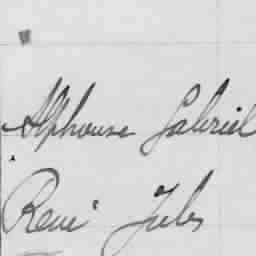 Alphonse Gabriel
René Jules